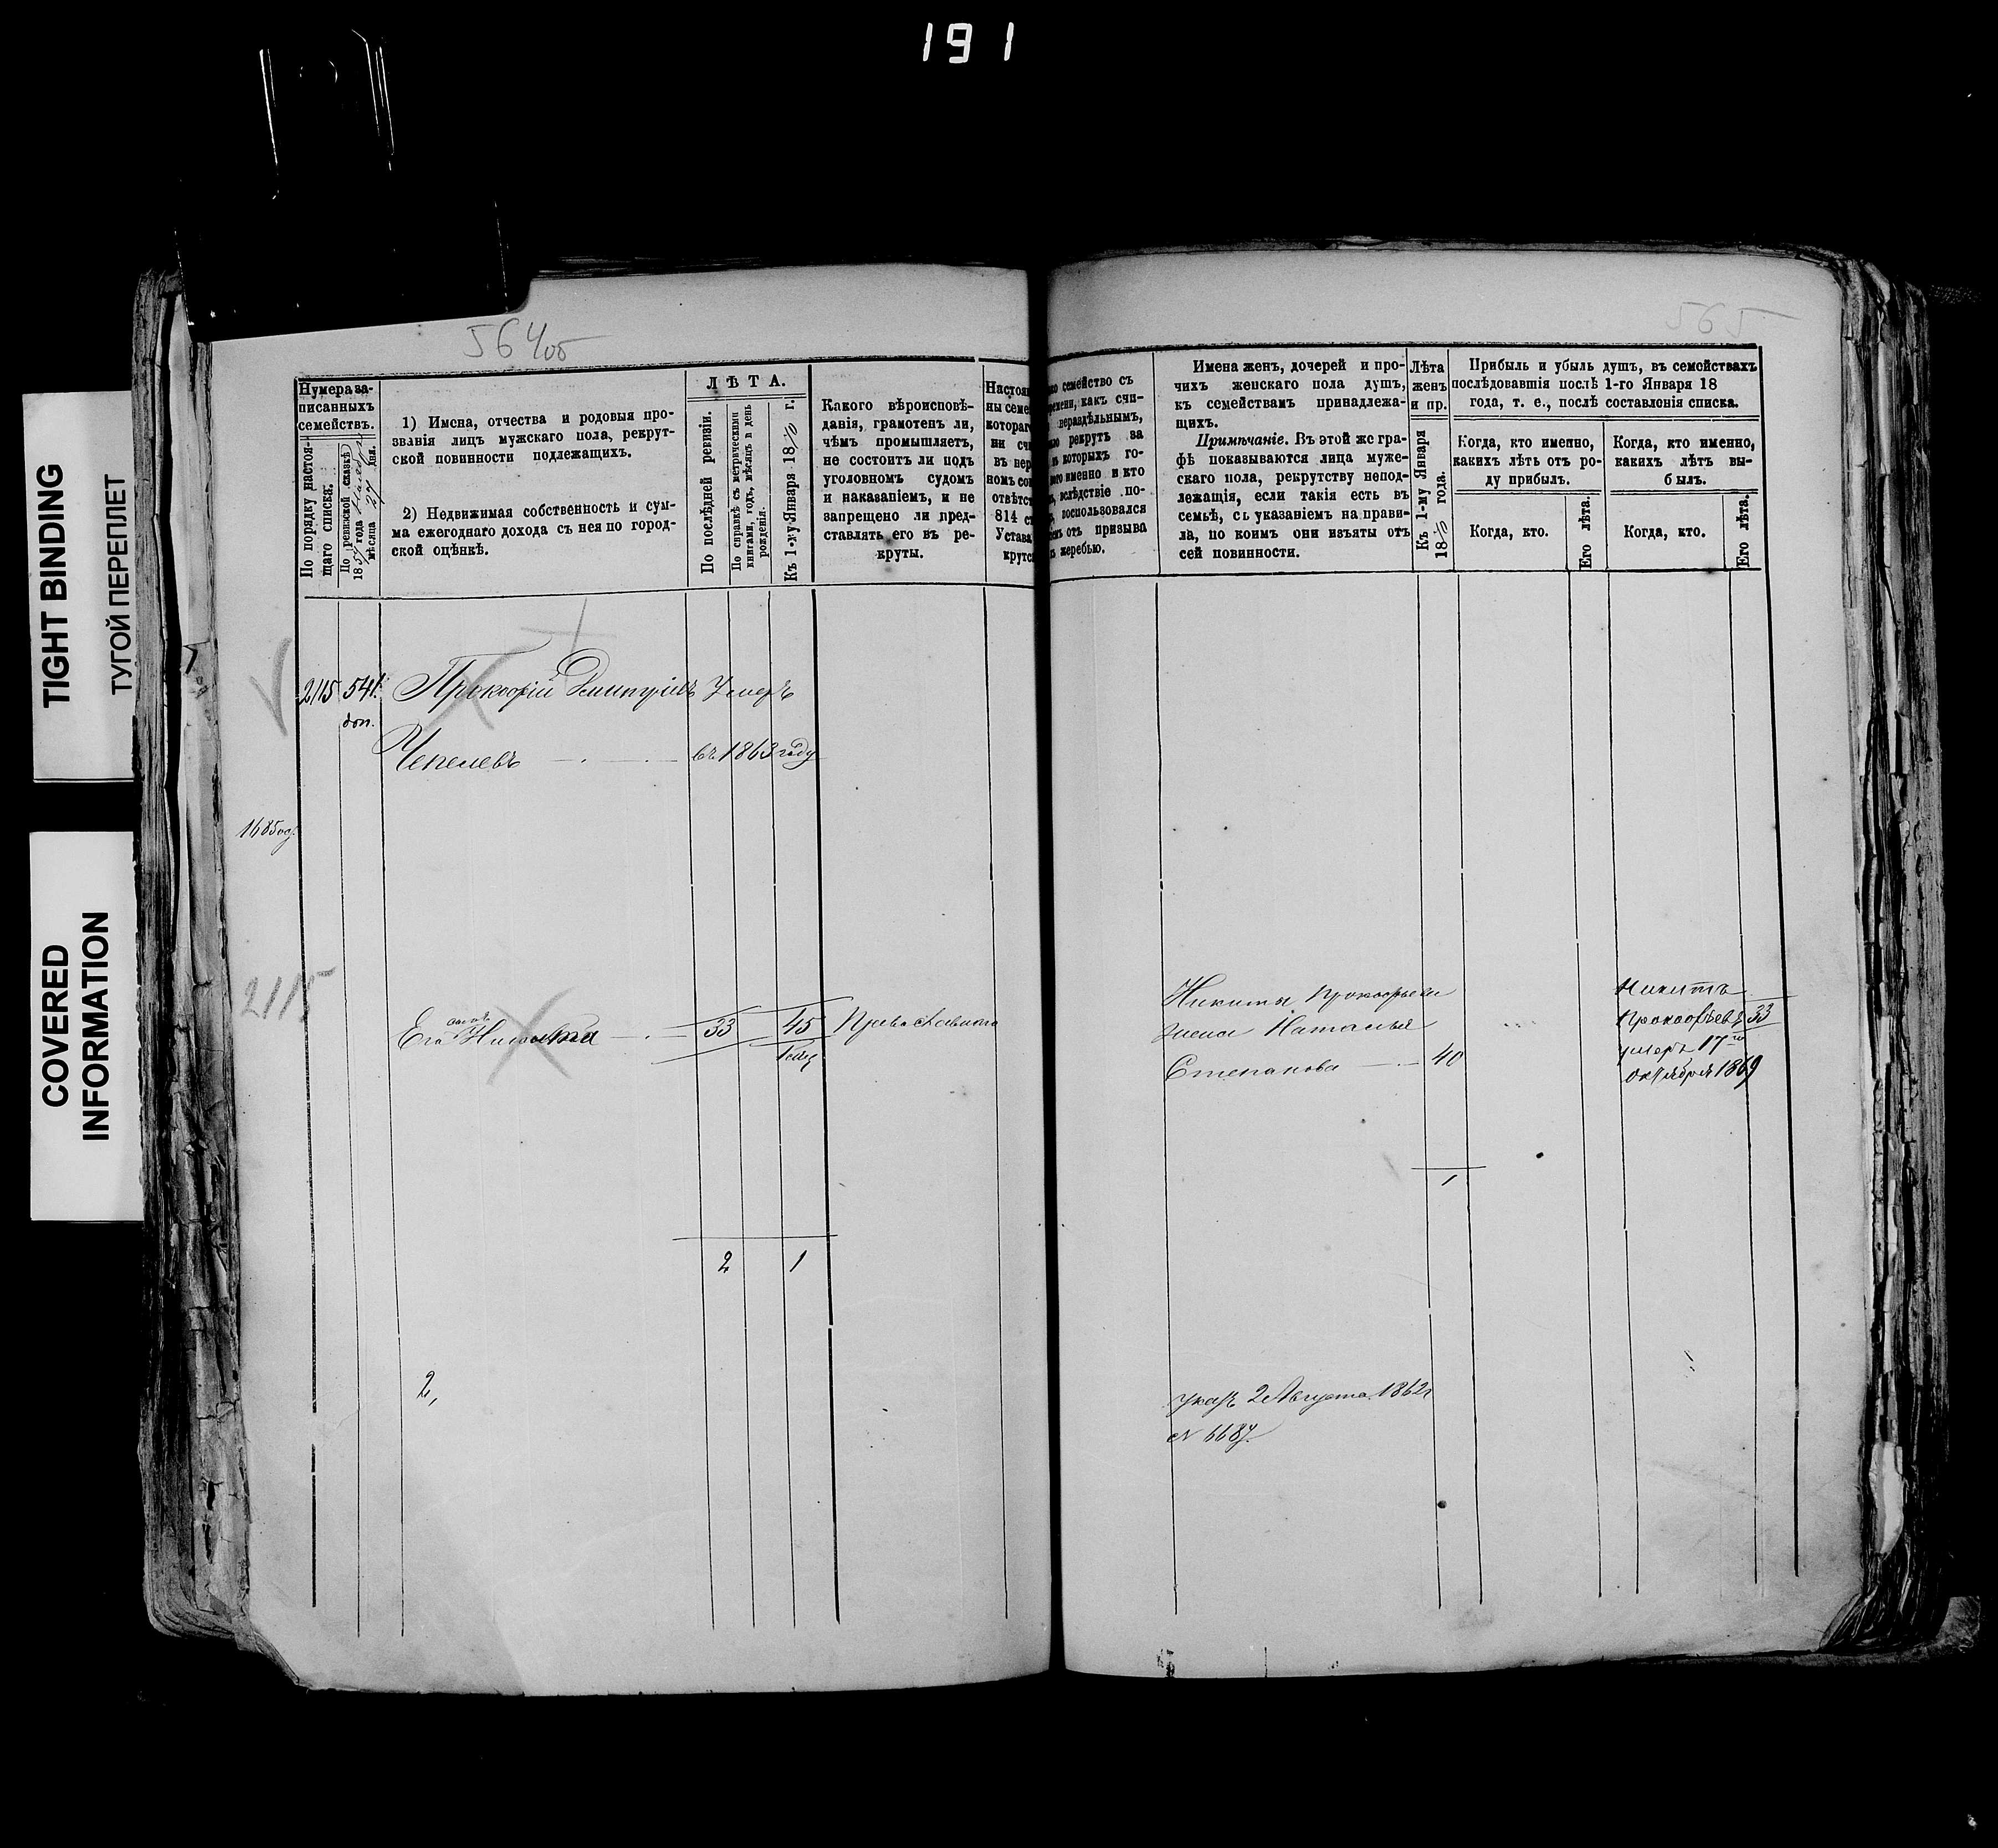 191
TIGHT BINDING
ТУГОЙ ПЕРЕПЛЕТ
COVERED
INFORMATION
564об
Нумера за-
писанныхъ
семействъ.
По порядку настоя-
щаго списка.
По ревизской сказкѣ
185 года
мѣсяца 27 дня.
1) Имена, отчества и родовыя про-
званія лицъ мужскаго пола, рекрут-
ской повинности подлежащихъ.
2) Недвижимая собственность и сум-
ма ежегоднаго дохода съ нея по город-
ской оцѣнкѣ.
ЛѢТА.
По послѣдней ревизіи.
По справкѣ съ метрическими
книгами, годъ, мѣсяцъ и день
рожденія.
Къ 1-му Января 1870 г.
Какого вѣроисповѣ-
данія, грамотенъ ли,
чѣмъ промышляетъ,
не состоитъ ли подъ
уголовномъ судомъ
и наказаніемъ, и не
запрещено ли пред-
ставлять его въ ре-
круты.
Настоя
ны семе
котораг
ни сч
въ нер
номъ со
отвѣтс
814 ст
Устава
крутс
2115 541 Прокофій Дмитріевъ Умеръ
доп.
Чепелевъ въ 1863 году
1685
2115
Его сынъ Никита 33 45 Православнаго
2 1
2,
565
семейство съ
ремени, какъ счи-
нераздѣльнымъ,
рекрутъ за
которыхъ го-
именно и кто
вслѣдствіе по-
воспользовался
отъ призыва
жеребью.
Имена женъ, дочерей и про-
чихъ женскаго пола душъ,
къ семействамъ принадлежа-
щихъ.
Примѣчаніе. Въ этой же гра-
фѣ показываются лица муже-
скаго пола, рекрутству непод-
лежащія, если такія есть въ
семьѣ, съ указаніемъ на прави-
ла, по коимъ они изъяты отъ
сей повинности.
Лѣта
женъ
и пр.
Къ 1-му Января
1870 года.
Прибыль и убыль душъ, въ семействахъ
послѣдовавшія послѣ 1-го Января 18
года, т. е., послѣ составленія списка.
Когда, кто именно,
какихъ лѣтъ отъ ро-
ду прибылъ.
Когда, кто именно,
какихъ лѣтъ вы-
былъ.
Когда, кто.
Его лѣта.
Когда, кто.
Его лѣта.
Никиты Прокофьева
жена Наталья
Степанова 40
1
Никита
Прокофьевъ 33
умеръ 17го
октября 1869
указъ 2 Августа 1862г
№ 6687.